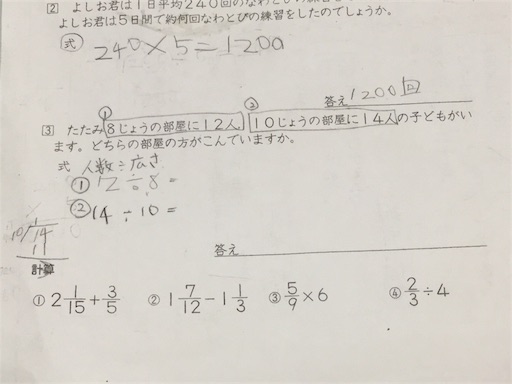 [2] よしお君は1日平均240回のなわとびの
よしお君は5日間で約何回なわとびの練習をしたのでしょうか。
式 240×5=1200
答え 1200回
① ②
[3] たたみ8じょうの部屋に12人、10じょうの部屋に14人の子どもがい
ます。どちらの部屋の方がこんでいますか。
式 人数÷広さ
① 12÷8=
② 14÷10=
答え
計算
① 2 1/15 + 3/5 ② 1 7/12 − 1 1/3 ③ 5/9 × 6 ④ 2/3 ÷ 4